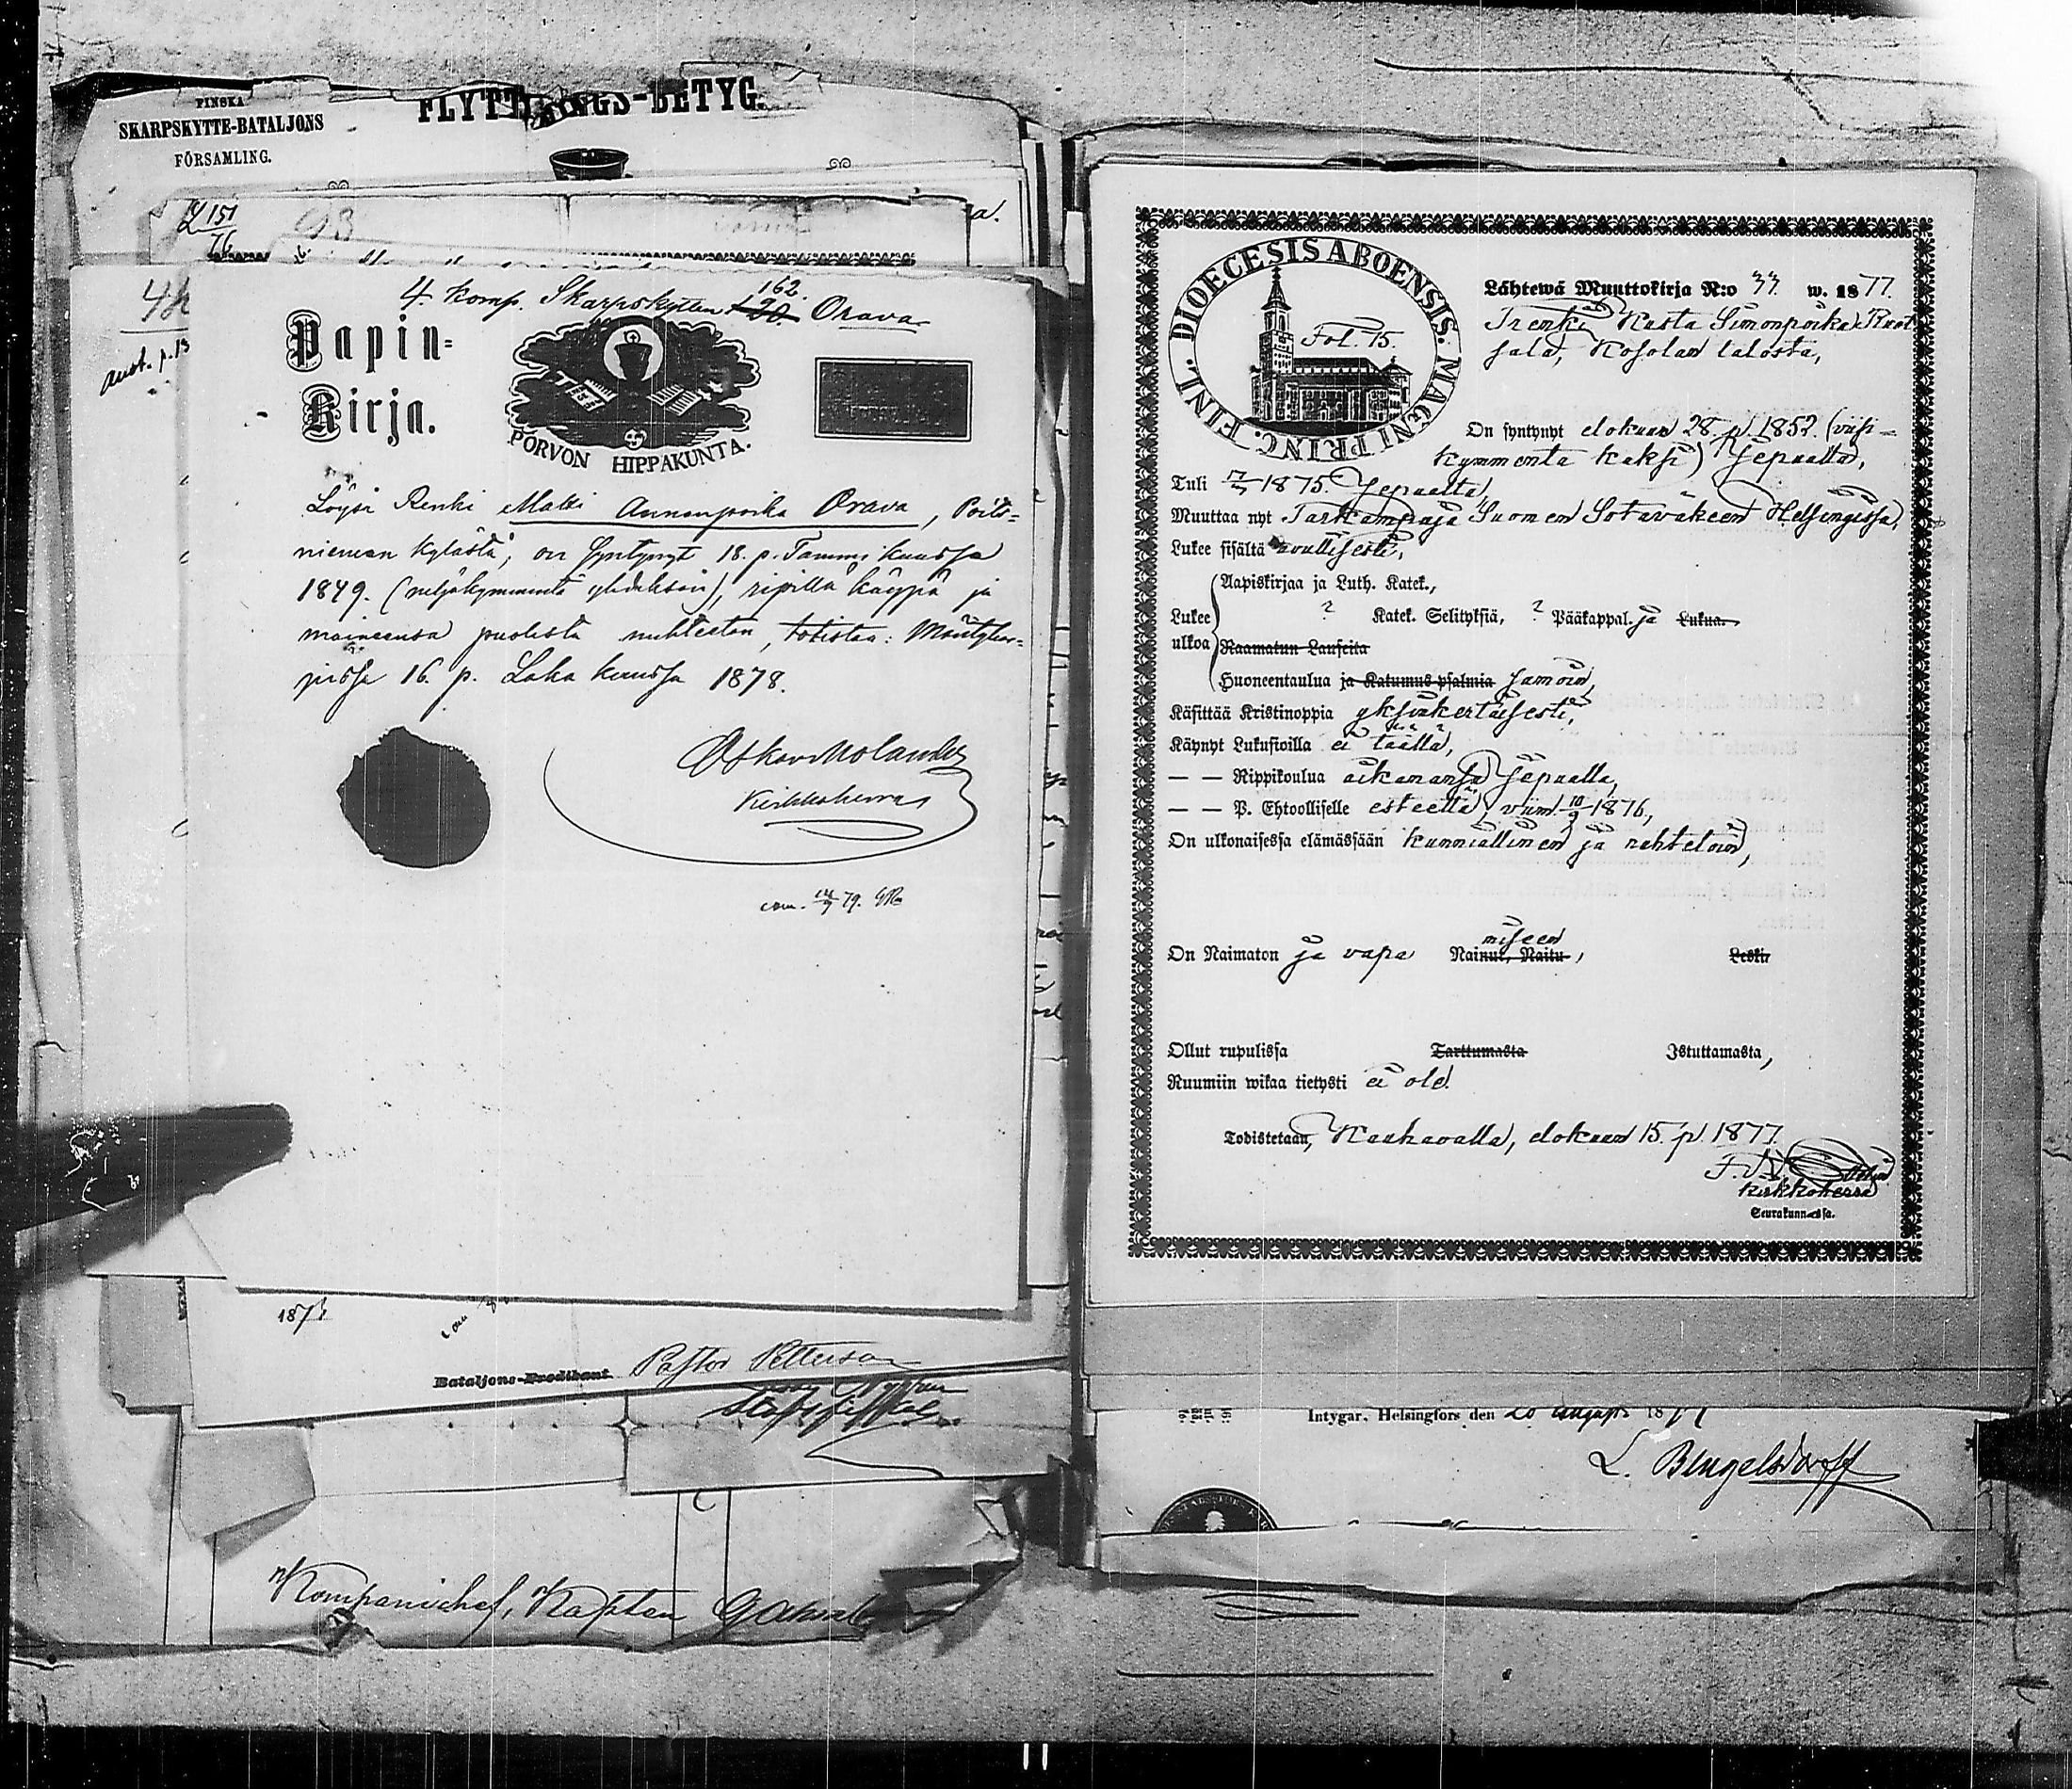 FINSKA
SKARPSKYTTE-BATALJONS
FÖRSAMLING.
FLYTTNINGS-BETYG.
151
76
93
a.
4. Komp. Skarpskytten 120. 162. Orava
Papin-
Kirja.
PORVON HIPPAKUNTA.
Löysi Renki Matti Annanpoika Orava, Pöits-
niemen kylästä, on syntynyt 18. p. Tammi kuussa
1849. (neljäkymmentä yhdeksän), ripillä käypä ja
maineensa puolesta nuhteeton, totistaa: Mäntyhar-
jussa 16. p. Loka kuussa 1878.
Oskar Molander
Kirkkoherra
1878
Bataljons-Predikant Pastor Petterson
Kompanichef, Kapten
DIOECESIS ABOENSIS. MAGNI PRINC. FINL.
Fol. 15.
Lähtewä Muuttokirja N:o 37. w. 1877.
Trenki Kusta Simonpoika Ruot
sala, Kosolan talosta,
On syntynyt elokuun 28 p. 1852. (viisi-
kymmentä kaksi) Jepualla,
Tuli 1875. Jepualta,
Muuttaa nyt Tarkampuja Suomen Sotaväkeen Helsingissä,
Lukee sisältä avullisesti,
Aapiskirjaa ja Luth. Katek.,
Lukee ? Katek. Selityksiä, ? Pääkappal. ja Lukua.
ulkoa Raamatun Lauseita
Huoneentaulua ja Katumus-psalmia samoin,
Käsittää Kristinoppia yksinkertaisesti,
Käynyt Lukusioilla ei täällä,
— — Rippikoulua aikanansa Jepualla,
— — P. Ehtoolliselle esteettä viim. 10/9 1876,
On ulkonaisessa elämässään kunniallinen ja nehteloin,
miseen
On Naimaton ja vapa Nainut, Naitu, Leski,
Ollut rupulissa Tarttumasta Istuttamasta,
Ruumiin wikaa tietysti ei ole.
Todistetaan, Kauhavalla, elokuun 15. p. 1877.
Kirkkoherra
Seurakunnassa.
Intygar, Helsingfors den 20 Augusti 1877
L. Bengelsdorff